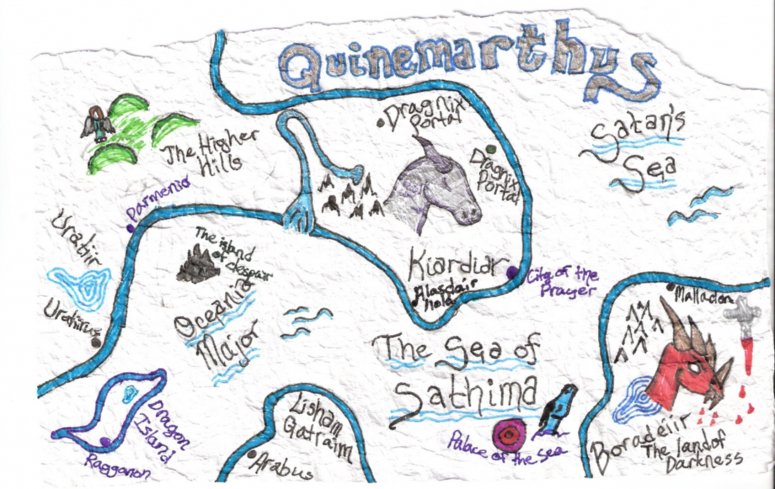 Quinemarthus
Dragnix
Portal
Satan's
Sea
The Higher
Hills
Dragnix
Portal
Parmenio
The island
of despair
Kiardiar
Alasdair
City of the
Prayer
Oceania
Major
Malladon
The Sea of
Sathima
Dragon
Island
Raggonon
Lisham
Gatraim
Arabus
Palace of the sea
The land of
Darkness